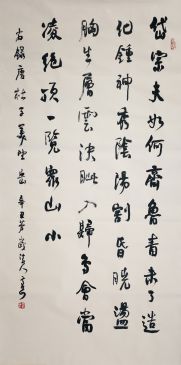 岱宗夫如何齊魯青未了造
化鍾神秀陰陽割昏曉盪
胸生層雲決眦入歸鳥會當
凌絕頂一覽衆山小
右錄唐杜子美望岳 辛丑